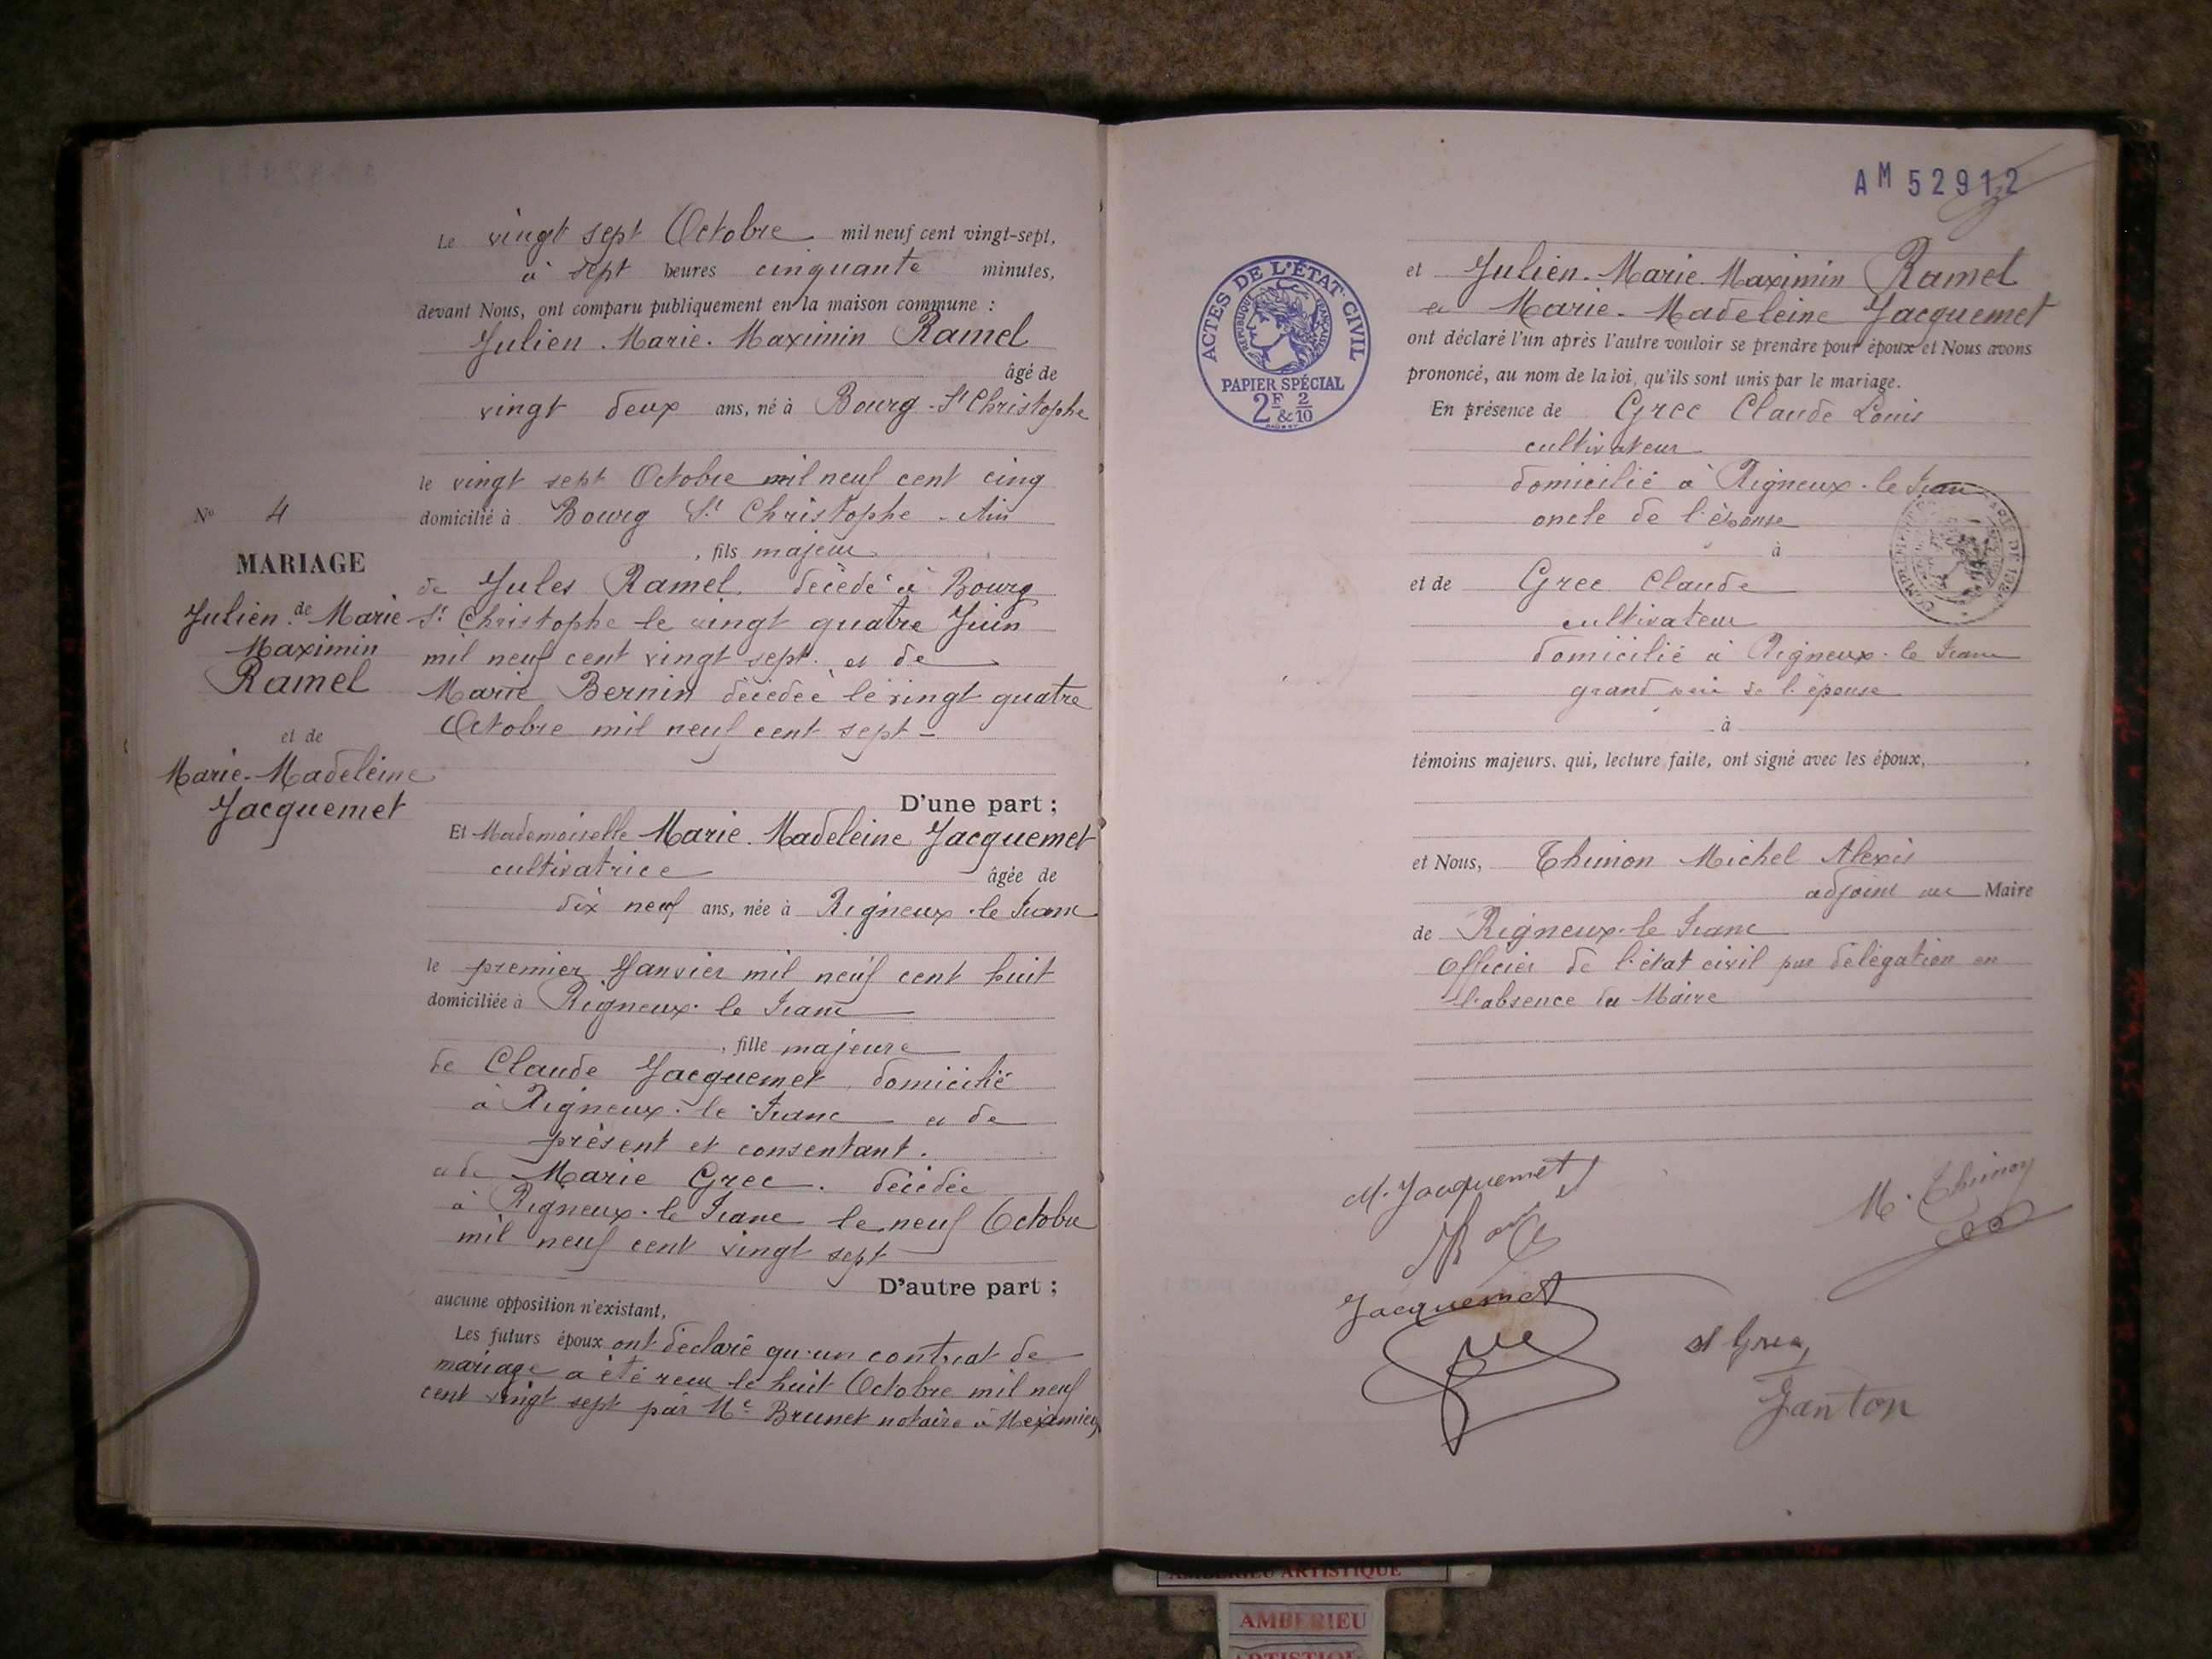 Le vingt sept Octobre mil neuf cent vingt-sept,
à sept heures cinquante minutes,
devant Nous, ont comparu publiquement en la maison commune :
Julien. Marie. Maximin Ramel
âgé de
vingt deux ans, né à Bourg-St Christophe
le vingt sept Octobre mil neuf cent cinq
domicilié à Bourg St Christophe - Ain
, fils majeur
de Jules Ramel, décédé à Bourg
St Christophe le vingt quatre Juin
mil neuf cent vingt sept. et de
Marie Bernin décédée le vingt quatre
Octobre mil neuf cent sept -
D'une part ;
Et Mademoiselle Marie. Madeleine Jacquemet
cultivatrice âgée de
dix neuf ans, née à Rigneux-le Franc
le premier Janvier mil neuf cent huit
domiciliée à Rigneux-le Franc
, fille majeure
de Claude Jacquemet, domicilié
à Rigneux-le Franc et de
présent et consentant.
et de Marie Grec. décédée
à Rigneux-le Franc le neuf Octobre
mil neuf cent vingt sept
D'autre part ;
aucune opposition n'existant,
Les futurs époux ont déclaré qu'un contrat de
mariage a été reçu le huit Octobre mil neuf
cent vingt sept par Me Brunet notaire à Meximieux
No 4
MARIAGE
de
Julien. Marie
Maximin
Ramel
et de
Marie-Madeleine
Jacquemet
AM 52912
ACTES DE L'ÉTAT CIVIL
RÉPUBLIQUE FRANÇAISE
PAPIER SPÉCIAL
2F & 2/10
et Julien. Marie. Maximin Ramel
et Marie-Madeleine Jacquemet
ont déclaré l'un après l'autre vouloir se prendre pour époux et Nous avons
prononcé, au nom de la loi, qu'ils sont unis par le mariage.
En présence de Grec Claude Louis
cultivateur
domicilié à Rigneux-le Franc
oncle de l'épouse
à
et de Grec Claude
cultivateur
domicilié à Rigneux-le Franc
grand père de l'épouse
à
témoins majeurs, qui, lecture faite, ont signé avec les époux,
et Nous, Thimon Michel Alexis
adjoint au Maire
de Rigneux-le Franc
Officier de l'état civil par délégation en
l'absence du Maire
M. Jacquemet
M. Thimon
Jacquemet
Janton
AMBERIEU ARTISTIQUE
AMBERIEU
ARTISTIQUE